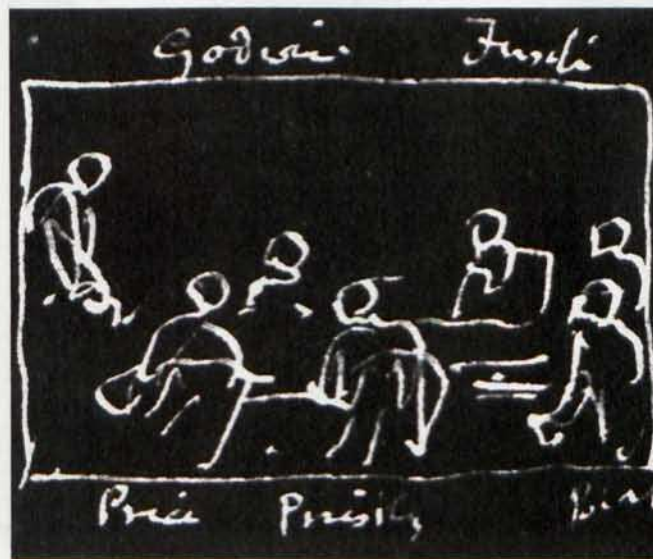 Godwin Fuseli
Price Priestly